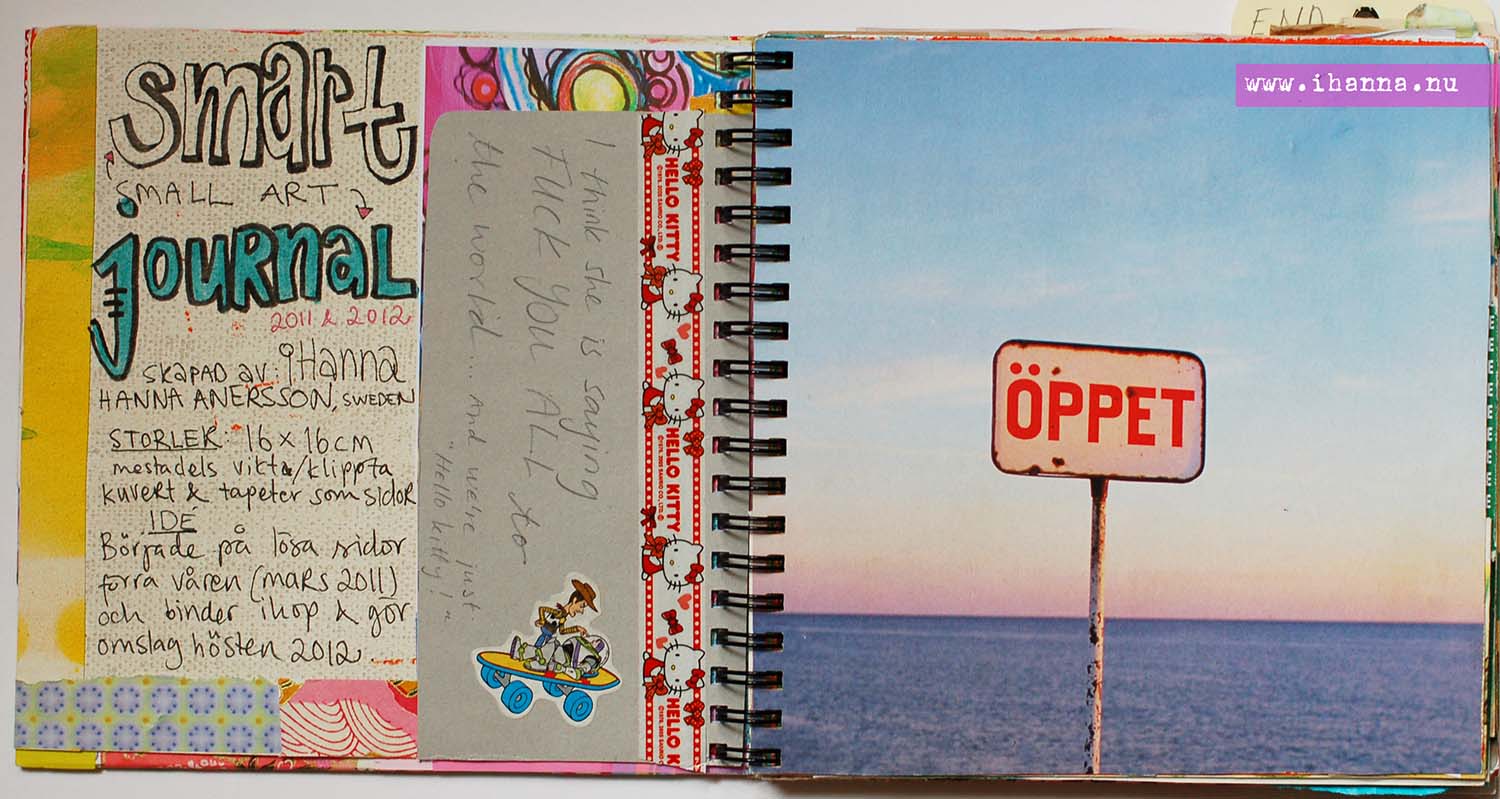 smart
SMALL ART
JOURNAL
2011 & 2012
SKAPAD av: iHanna
HANNA ANERSSON, SWEDEN
STORLEK: 16 x 16 cm
mestadels vikta/klippta
kuvert & tapeter som sidor
IDÉ
Började på lösa sidor
förra våren (mars 2011)
och binder ihop & gör
omslag hösten 2012
I think she is saying
FUCK YOU ALL to
the world... And we're just
"Hello kitty!"
HELLO KITTY
©1976, 2005 SANRIO CO., LTD.
HELLO KITTY
©1976, 2005 SANRIO CO., LTD.
HELLO K
END
www.ihanna.nu
ÖPPET